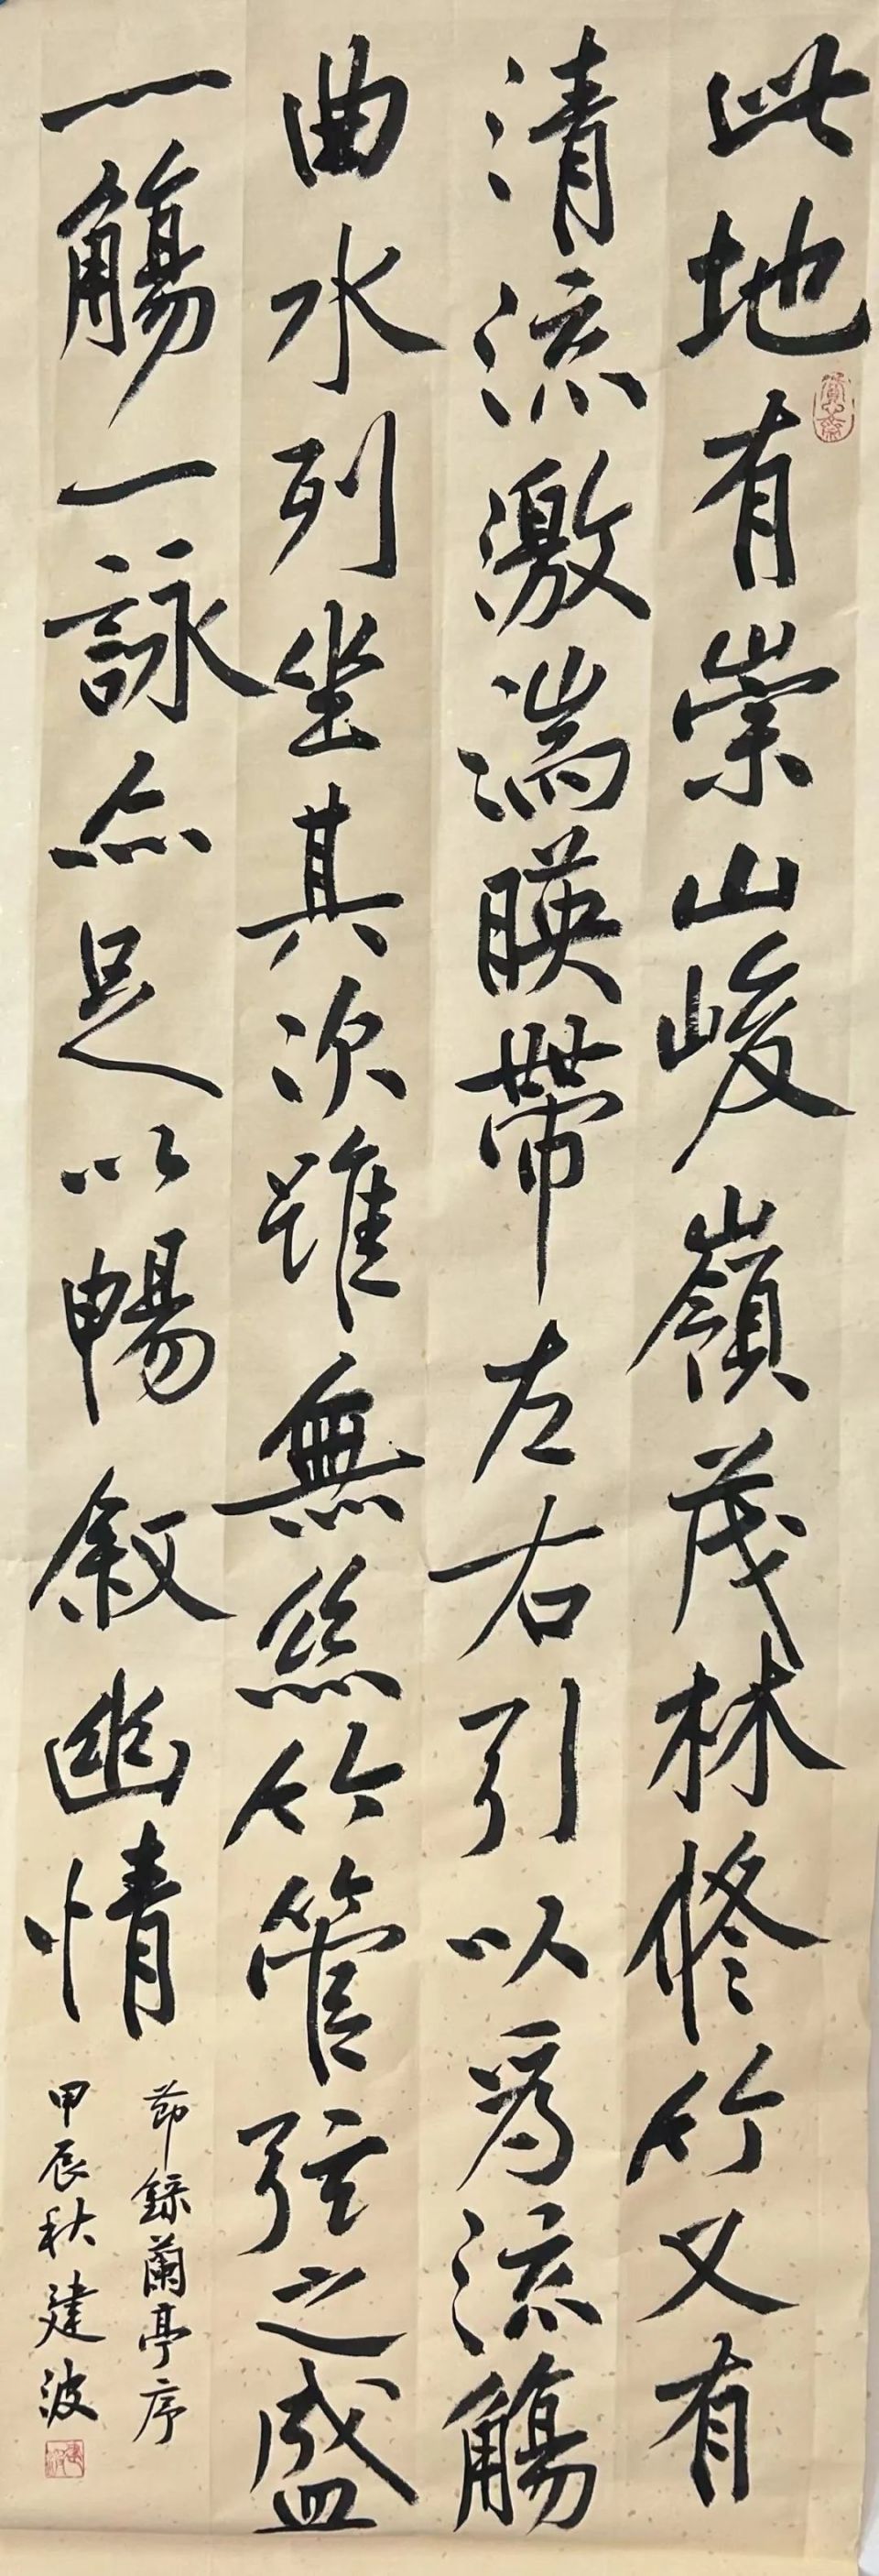 此地有崇山峻嶺茂林修竹又有
清流激湍暎帶左右引以為流觴
曲水列坐其次雖無絲竹管弦之盛
一觴一詠亦足以暢叙幽情
節錄蘭亭序
甲辰秋建波
建波